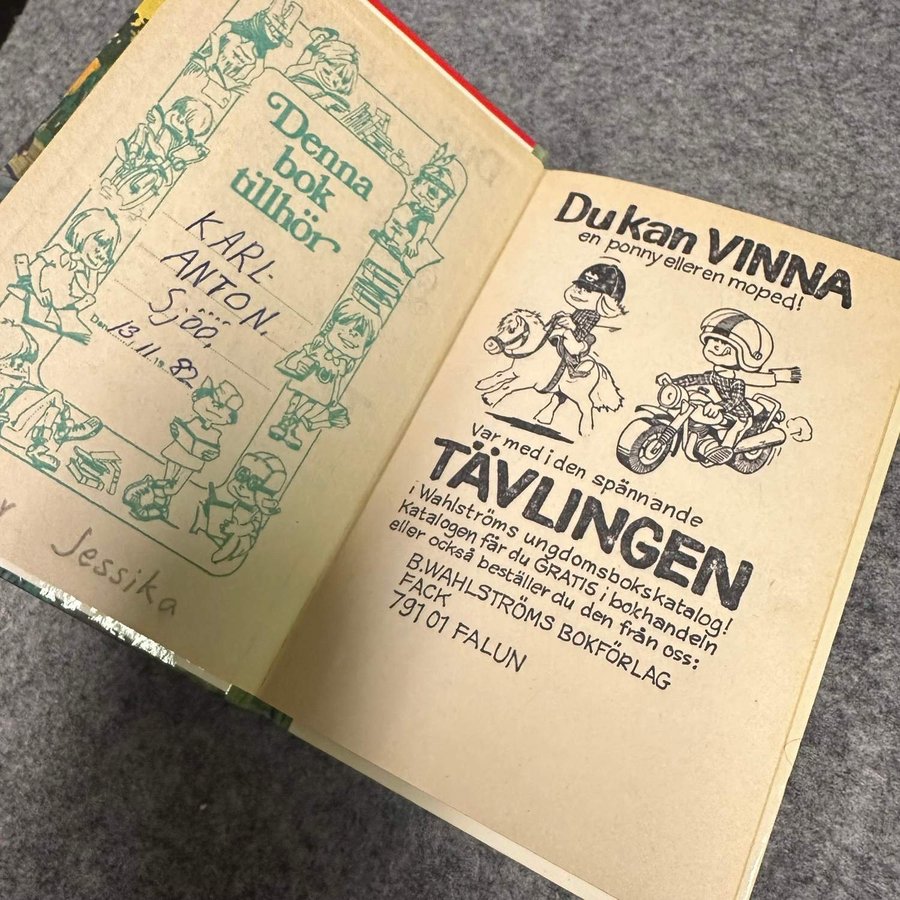 Denna
bok
tillhör
KARL-
ANTON.
Sjöö,
Den 13.11.1982
Jessika
Du kan VINNA
en ponny eller en moped!
Var med i den spännande
TÄVLINGEN
i Wahlströms ungdomsbokskatalog!
Katalogen får du GRATIS i bokhandeln
eller också beställer du den från oss:
B.WAHLSTRÖMS BOKFÖRLAG
FACK
791 01 FALUN